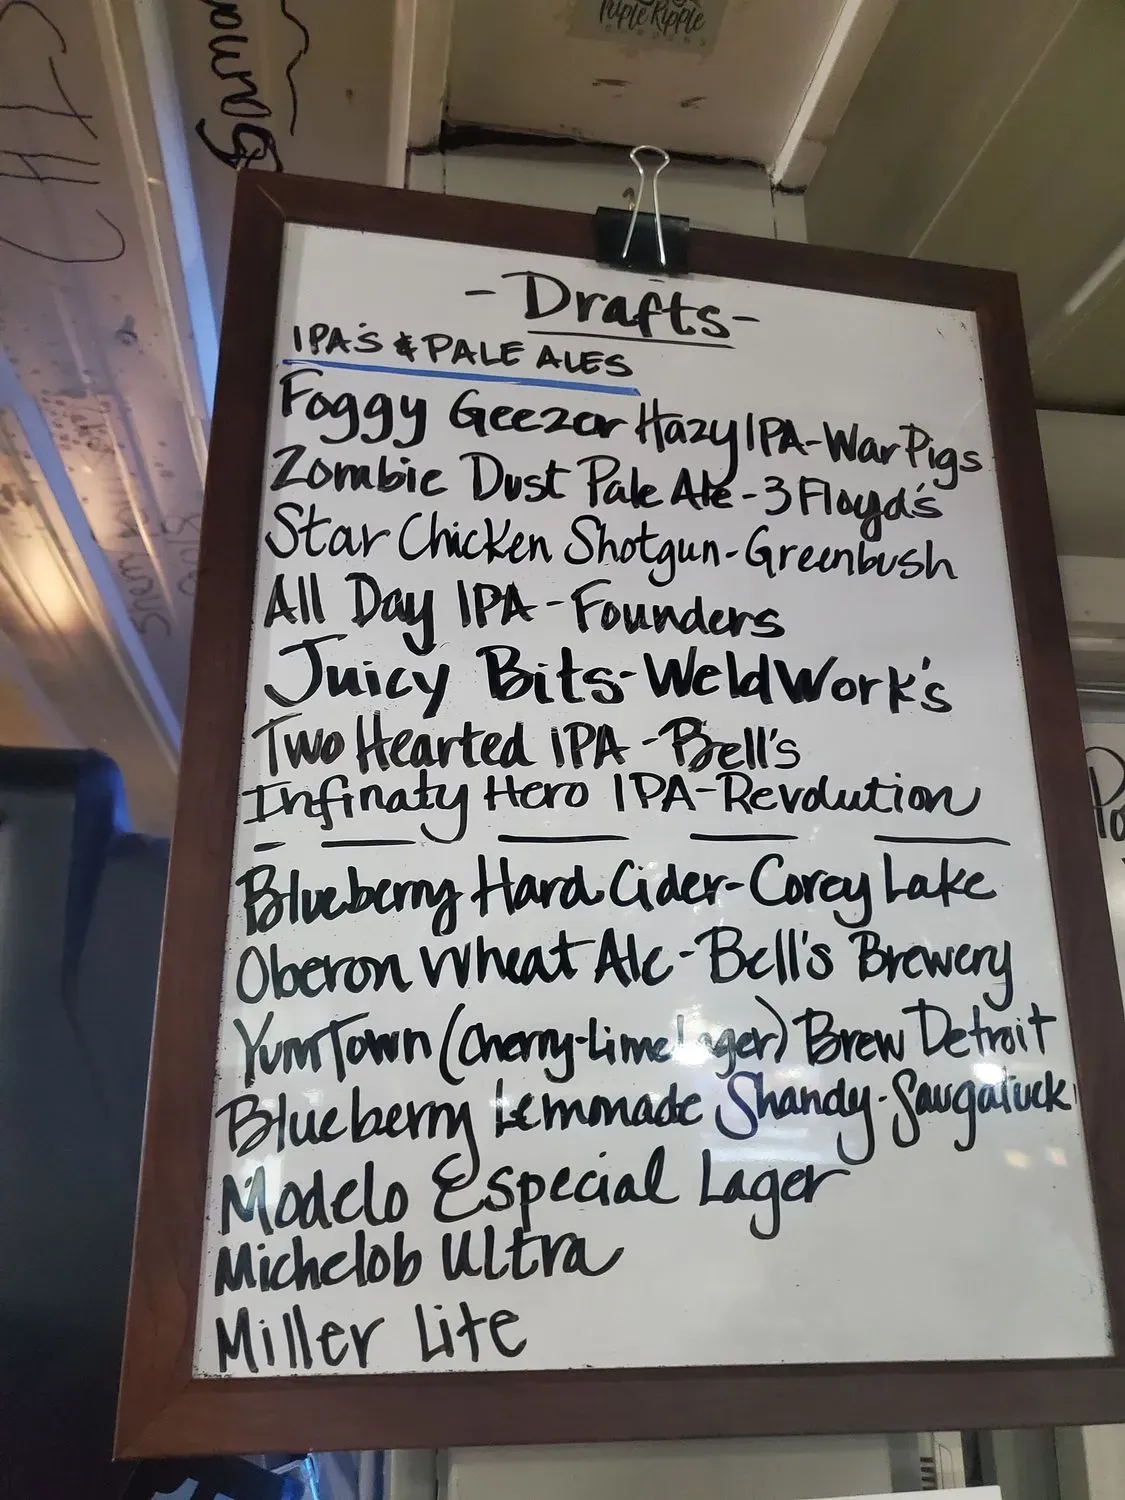 Purple Ripple
- Drafts -
IPA'S & PALE ALES
Foggy Geezer Hazy IPA - War Pigs
Zombie Dust Pale Ale - 3 Floyd's
Star Chicken Shotgun - Greenbush
All Day IPA - Founders
Juicy Bits - WeldWork's
Two Hearted IPA - Bell's
Infinaty Hero IPA - Revolution
Blueberry Hard Cider - Corey Lake
Oberon Wheat Ale - Bell's Brewery
YumTown (Cherry-Lime Lager) Brew Detroit
Blueberry Lemonade Shandy - Saugatuck
Modelo Especial Lager
Michelob Ultra
Miller Lite